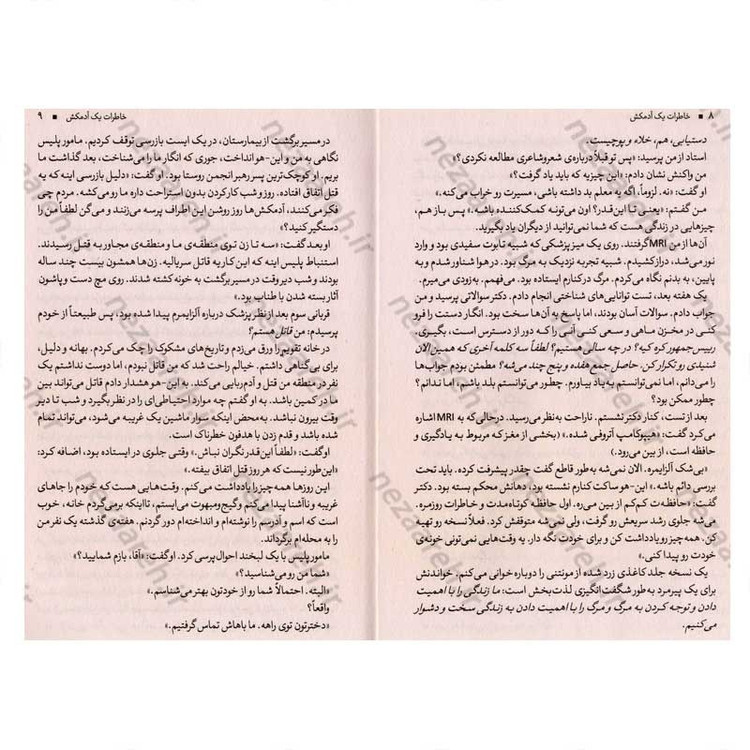 ۸ ■ خاطرات یک آدمکش
دستیابی، هم، خلاء و پوچیست.
استاد از من پرسید: «پس تو قبلاً درباره‌ی شعر و شاعری مطالعه نکردی؟»
من واکنش نشان دادم: «این چیزیه که باید یاد گرفت؟»
او گفت: «نه. لزوماً. اگه یه معلم بد داشته باشی، مسیرت رو خراب می‌کنه.»
من گفتم: «یعنی تا این قدر؟ اون می‌تونه کمک‌کننده باشه.» پس باز هم،
چیزهایی در زندگی هست که شما نمی‌توانید از دیگران یاد بگیرید.
آن‌ها از من MRI گرفتند. روی یک میز پزشکی که شبیه تابوت سفیدی بود و وارد
نور می‌شد، دراز کشیدم. شبیه تجربه نزدیک به مرگ بود. در هوا شناور شدم و به
پایین، به بدنم نگاه می‌کردم. مرگ در کنارم ایستاده بود. می‌فهمم. به‌زودی می‌میرم.
یک هفته بعد، تست توانایی‌های شناختی انجام دادم. دکتر سوالاتی پرسید و من
جواب دادم. سوالات آسان بودند، اما پاسخ به آن‌ها سخت بود. انگار دستت را فرو
کنی در مخزن ماهی و سعی کنی آنی را که دور از دسترس است، بگیری.
رییس‌جمهور کره کیه؟ در چه سالی هستیم؟ لطفاً سه کلمه آخری که همین الان
شنیدی رو تکرار کن. حاصل جمع هفده و پنج چند می‌شه؟ مطمئن بودم جواب‌ها
را می‌دانم، اما نمی‌توانستم به یاد بیاورم. چطور می‌توانستم بلد باشم، اما ندانم؟
چطور ممکن بود؟
بعد از تست، کنار دکتر نشستم. ناراحت به نظر می‌رسید. درحالی‌که به MRI اشاره
می‌کرد گفت: «هیپوکامپ آتروفی شده.» (بخشی از مغز که مربوط به یادگیری و
حافظه است، از بین می‌رود.)
«بی‌شک آلزایمره. الان نمی‌شه به‌طور قاطع گفت چقدر پیشرفت کرده. باید تحت
بررسی دائم باشه.» این-هو ساکت کنارم نشسته بود، دهانش محکم بسته بود. دکتر
گفت: «حافظه‌ت کم‌کم از بین می‌ره. اول حافظه کوتاه‌مدت و خاطرات روزمره.
می‌شه جلوی رشد سریعش رو گرفت، ولی نمی‌شه متوقفش کرد. فعلاً نسخه رو تهیه
کن. همه‌چیز رو یادداشت کن و برای خودت نگه دار. یه وقت‌هایی نمی‌تونی خونه‌ی
خودت رو پیدا کنی.»
یک نسخه جلد کاغذی زرد شده از مونتنی را دوباره‌خوانی می‌کنم. خواندنش
برای یک پیرمرد به‌طور شگفت‌انگیزی لذت‌بخش است: ما زندگی را با اهمیت
دادن و توجه کردن به مرگ و مرگ را با اهمیت دادن به زندگی سخت و دشوار
می‌کنیم.
خاطرات یک آدمکش ■ ۹
در مسیر برگشت از بیمارستان، در یک ایست بازرسی توقف کردیم. مامور پلیس
نگاهی به من و این-هو انداخت، جوری که انگار ما را می‌شناخت، بعد گذاشت ما
بریم. او کوچک‌ترین پسر رهبر انجمن روستا بود. او گفت: «دلیل بازرسی اینه که یه
قتل اتفاق افتاده. روز و شب کار کردن بدون استراحت داره ما رو می‌کشه. مردم چی
فکر می‌کنند، آدمکش‌ها روز روشن این اطراف پرسه می‌زنند و می‌گن لطفاً من را
دستگیر کنید؟»
او بعد گفت: «سه تا زن توی منطقه‌ی ما و منطقه‌ی مجاور به قتل رسیدند.
استنباط پلیس اینه که این کار یه قاتل سریالیه. زن‌ها همشون بیست چند ساله
بودند و شب دیروقت در مسیر برگشت به خونه کشته شدند. روی مچ دست و پاشون
آثار بسته شدن با طناب بود.»
قربانی سوم بعد از نظر پزشک درباره آلزایمرم پیدا شده بود، پس طبیعتاً از خودم
پرسیدم: من قاتل هستم؟
در خانه تقویم را ورق می‌زدم و تاریخ‌های مشکوک را چک می‌کردم. بهانه و دلیل،
برای بی‌گناهی داشتم. خیالم راحت شد که من قاتل نبودم، اما دوست نداشتم یک
نفر در منطقه من قتل و آدم‌ربایی می‌کند. به این-هو هشدار دادم قاتل می‌تواند بین
ما در کمین باشد. به او گفتم چه موارد احتیاطی‌ای را در نظر بگیرد و شب تا دیر
وقت بیرون نباشد. به‌محض اینکه سوار ماشین یک غریبه می‌شود، می‌تواند تمام
شده باشد و قدم زدن با هدفون خطرناک است.
او گفت: «لطفاً این‌قدر نگران نباش.» وقتی جلوی در ایستاده بود، اضافه کرد:
«این‌طور نیست که هر روز قتل اتفاق بیفته.»
این روزها همه‌چیز را یادداشت می‌کنم. وقت‌هایی هست که خودم را جاهای
غریبه و ناآشنا پیدا می‌کنم و گیج و مبهوت می‌ایستم، تا اینکه برمی‌گردم خانه، خوب
است که اسم و آدرسم را نوشته‌ام و انداخته‌ام دور گردنم. هفته‌ی گذشته یک نفر من
را به محله‌ام برگرداند.
مامور پلیس با یک لبخند احوال‌پرسی کرد. او گفت: «آقا، بازم شمایید؟»
«شما من رو می‌شناسید؟»
«البته. احتمالاً شما رو از خودتون بهتر می‌شناسم.»
واقعاً؟
«دخترتون توی راهه. ما باهاش تماس گرفتیم.»
nezameh.ir